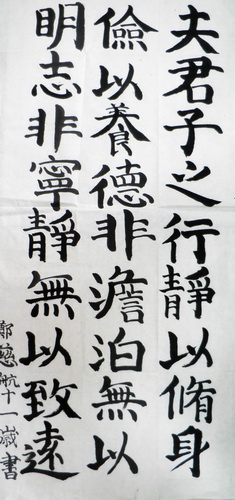 夫君子之行靜以脩身
儉以養德非澹泊無以
明志非寧靜無以致遠
鄭慈航十一歲書